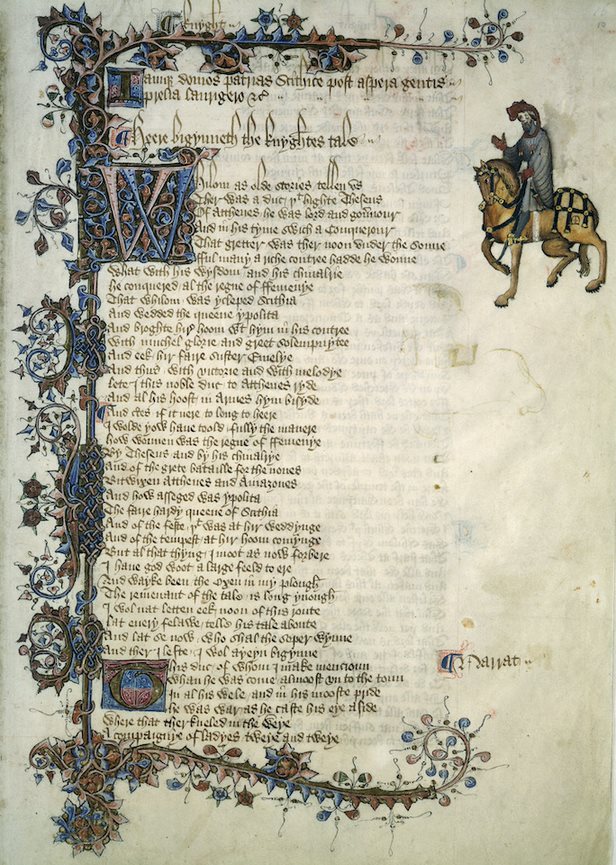 Knyght
Iamque domos patrias Scithice post aspera gentis
prelia laurigero &c
Heere bigynneth the knyghtes tale
Whilom as olde stories tellen vs
Ther was a duc þt highte Theseus
Of Atthenes he was lord and gouernour
And in his tyme swich a Conquerour
That gretter was ther noon vnder the sonne
fful many a riche contree hadde he wonne
What with his wysdom and his chiualrie
He conquered al the regne of ffemenye
That whilom was ycleped Scithia
And wedded the queene ypolita
And broghte hir hoom wt hym in his contree
With muchel glorie and greet solempnytee
And eek hir faire suster Emelye
And thus with victorie and with melodye
Lete I this noble duc to Atthenes ryde
And al his hoost in Armes hym bisyde
And certes if it nere to long to heere
I wolde yow haue toold fully the manere
How wonnen was the regne of ffemenye
By Theseus and by his chiualrye
And of the grete bataille for the nones
Bitwixen Atthenes and Amazones
And how asseged was ypolita
The faire hardy queene of Scithia
And of the feste þt was at hir weddynge
And of the tempest at hir hoom comynge
But al that thyng I moot as now forbere
I haue god woot a large feeld to ere
And wayke been the Oxen in my plough
The remenant of the tale is long ynough
I wol nat letten eek noon of this route
Lat euery felawe telle his tale aboute
And lat se now who shal the soper wynne
And ther I lefte I wol ayeyn bigynne
This duc of whom I make mencioun
Whan he was come almoost vn to the toun
In al his wele and in his mooste pride
He was war as he caste his eye aside
Where that ther kneled in the weye
A compaignie of ladyes tweye and tweye
Narrat